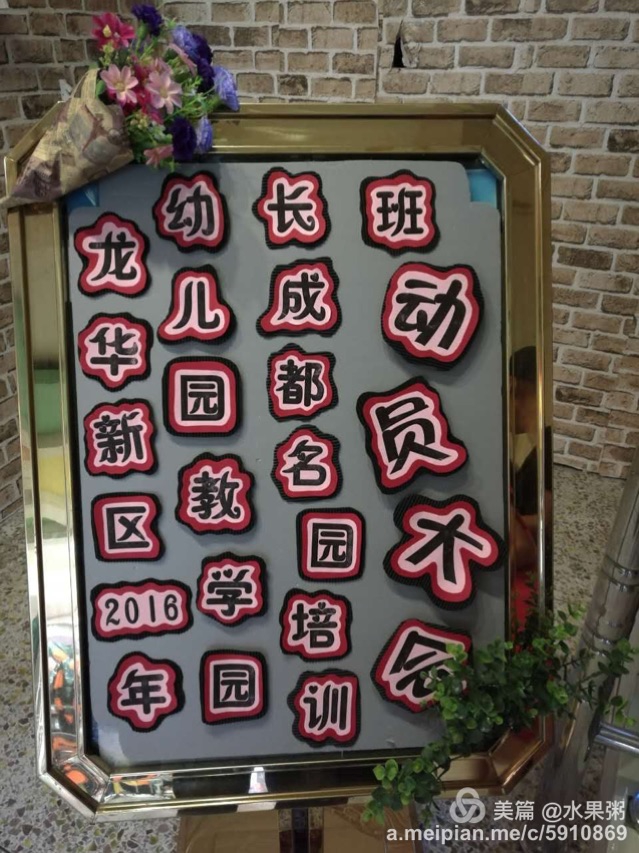 龙华新区2016年
幼儿园教学园
长成都名园培训
班动员不会
美篇 @水果粥
a.meipian.me/c/5910869